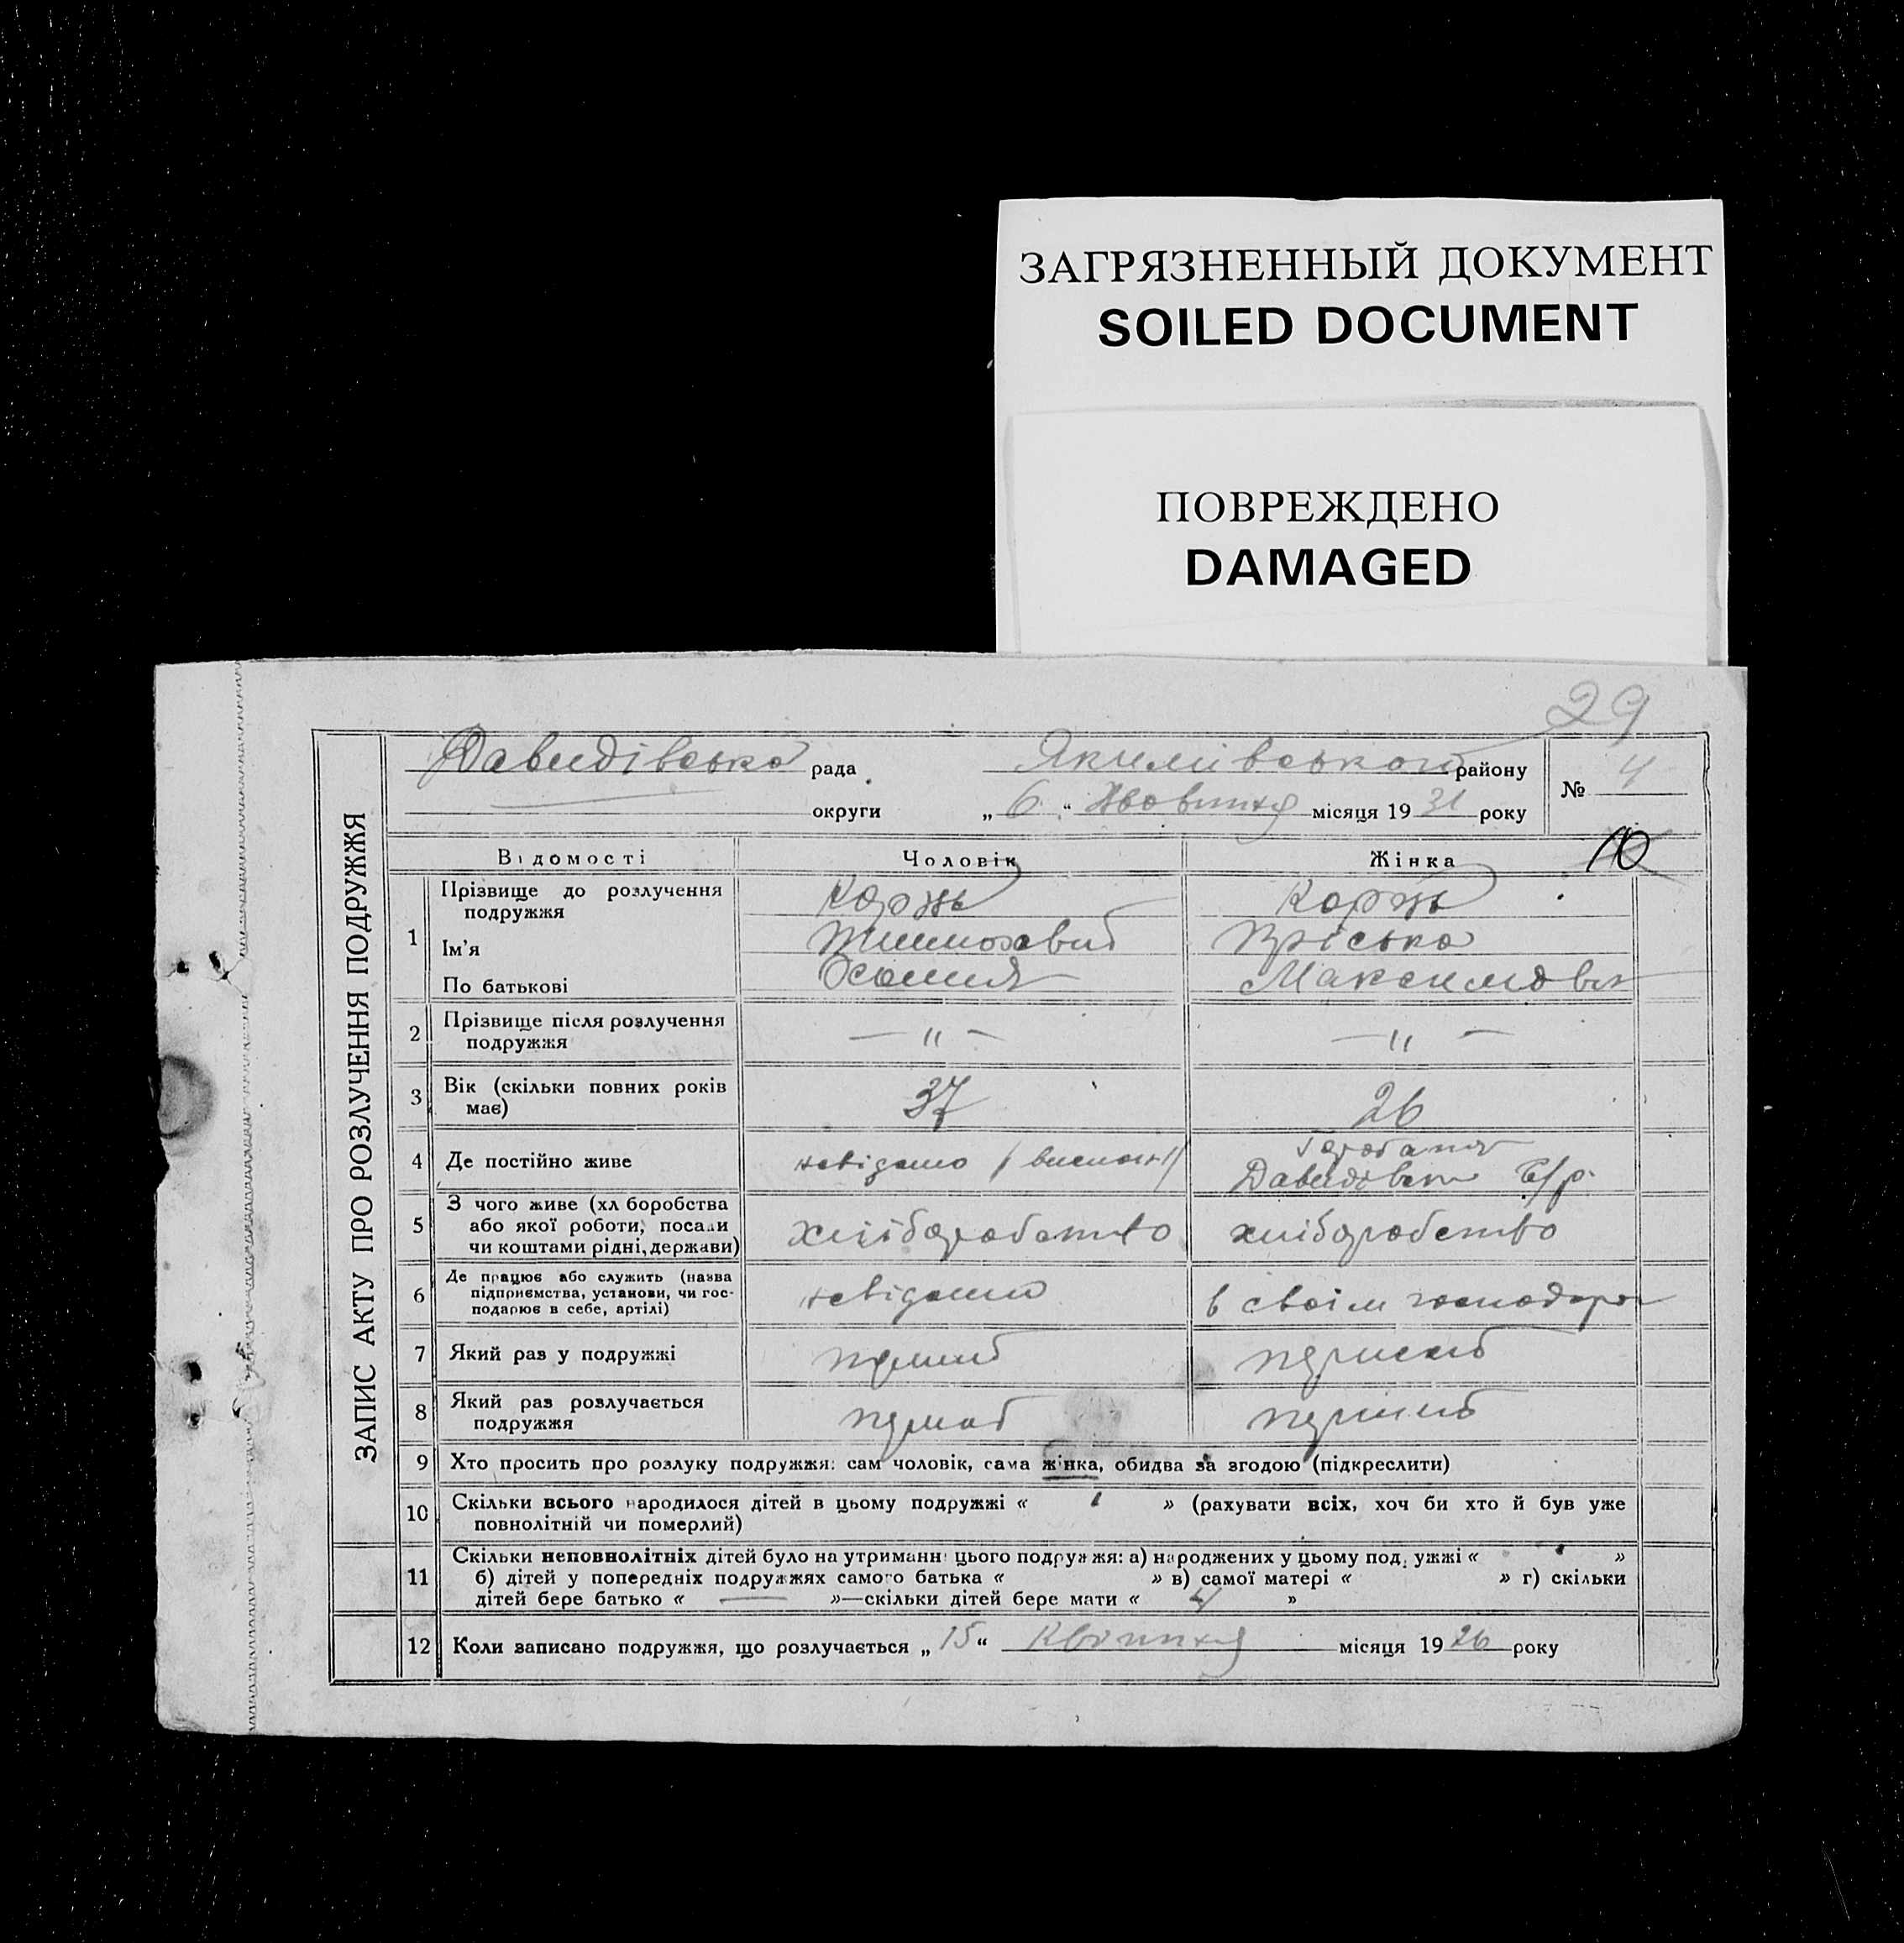 ЗАГРЯЗНЕННЫЙ ДОКУМЕНТ
SOILED DOCUMENT
ПОВРЕЖДЕНО
DAMAGED
29
ЗАПИС АКТУ ПРО РОЗЛУЧЕННЯ ПОДРУЖЖЯ
Давидівська рада Якимівського району № 4
округи „ 6 “ місяця 19 31 року
10
Відомості Чоловік Жінка
1 Прізвище до розлучення Коржъ Коржъ
подружжя
Ім'я Пріська
По батькові Максимовна
2 Прізвище після розлучення — „ — — „ —
подружжя
3 Вік (скільки повних років 37 26
має)
4 Де постійно живе невідомо Давидівськ с/р.
5 З чого живе (хліборобства хліборобство хліборобство
або якої роботи, посади
чи коштами рідні, держави)
6 Де працює або служить (назва невідомо в своїм господар
підприємства, установи, чи гос-
подарює в себе, артілі)
7 Який раз у подружжі перший перший
8 Який раз розлучається перший перший
подружжя
9 Хто просить про розлуку подружжя: сам чоловік, сама жінка, обидва за згодою (підкреслити)
10 Скільки всього народилося дітей в цьому подружжі « » (рахувати всіх, хоч би хто й був уже
повнолітній чи померлий)
11 Скільки неповнолітніх дітей було на утриманні цього подружжя: а) народжених у цьому подружжі « »
б) дітей у попередніх подружжях самого батька « » в) самої матері « » г) скільки
дітей бере батько « — »—скільки дітей бере мати « »
12 Коли записано подружжя, що розлучається „ 15 “ Квітня місяця 19 26 року